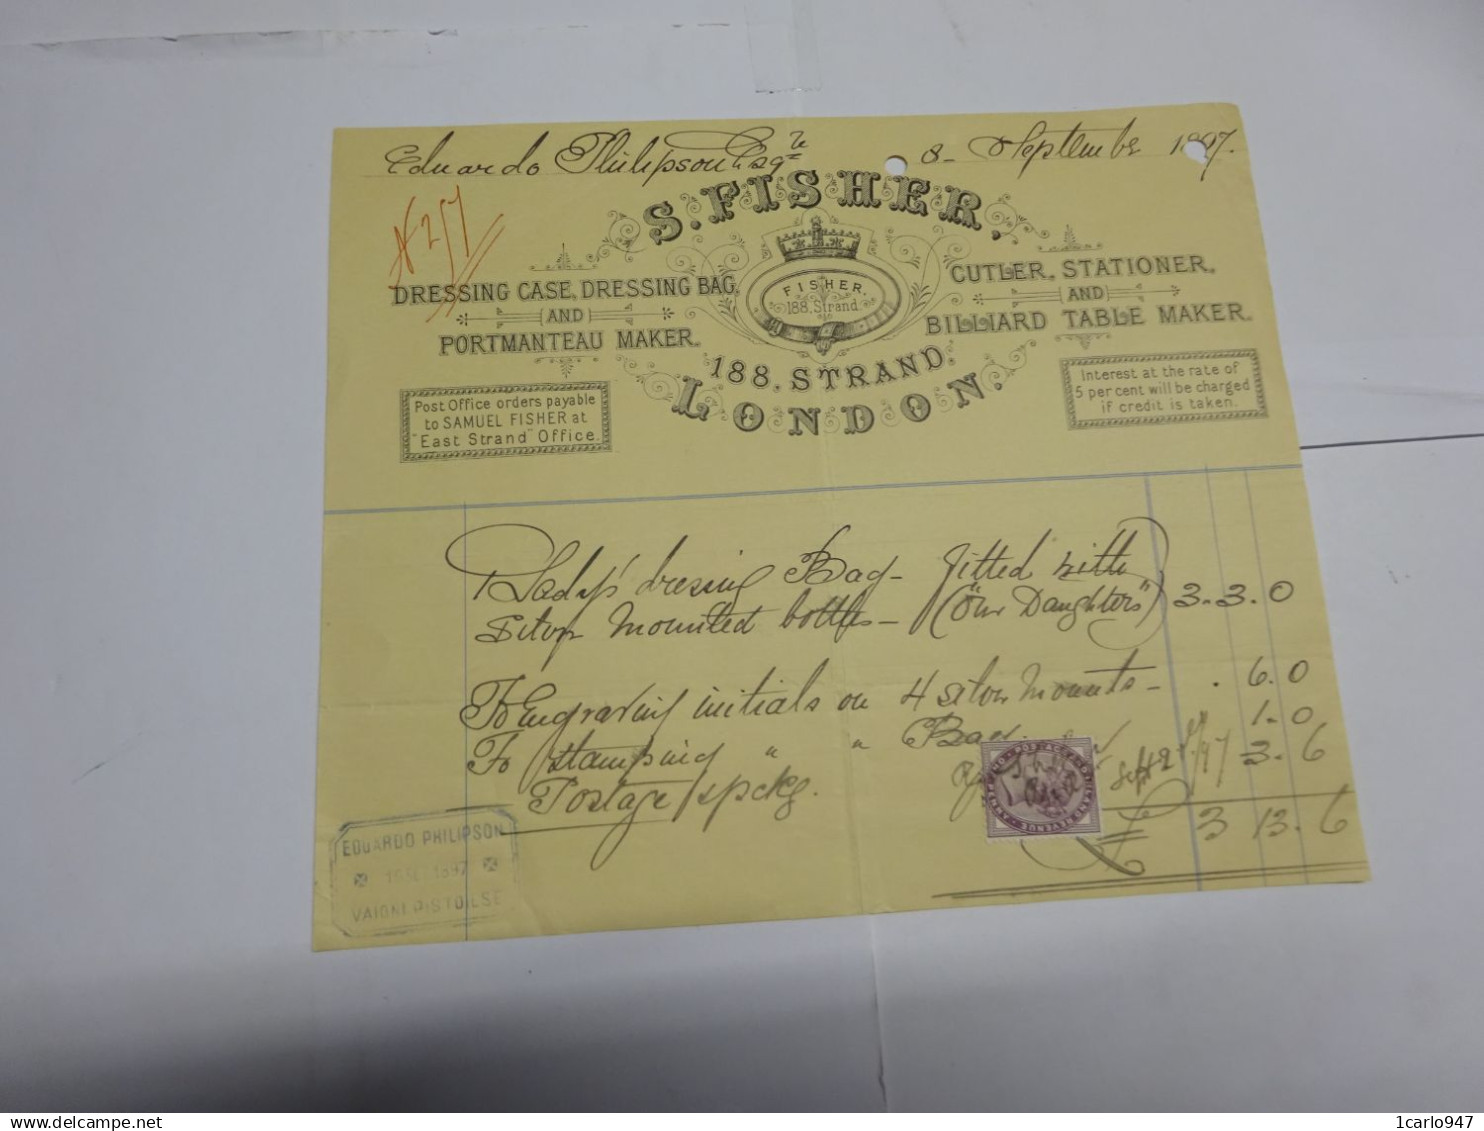 Eduardo Philipson Esqre 8 - September 1897.
S. FISHER,
DRESSING CASE, DRESSING BAG,
AND
PORTMANTEAU MAKER.
FISHER.
188. Strand.
CUTLER, STATIONER,
AND
BILLIARD TABLE MAKER.
188, STRAND.
LONDON.
Post Office orders payable
to SAMUEL FISHER at
"East Strand" Office.
Interest at the rate of
5 per cent will be charged
if credit is taken.
Lady's dressing Bag - fitted with
silver mounted bottles - ("Our Daughters") 3. 3. 0
To Engraving initials on 4 silver mounts - . 6. 0
To stamping " " Bag 1. 0
Postage & pckg. 3. 6
Sept 97
£ 3 13. 6
EDUARDO PHILIPSON
1897
VAIONI PISTOIESE
1carlo947